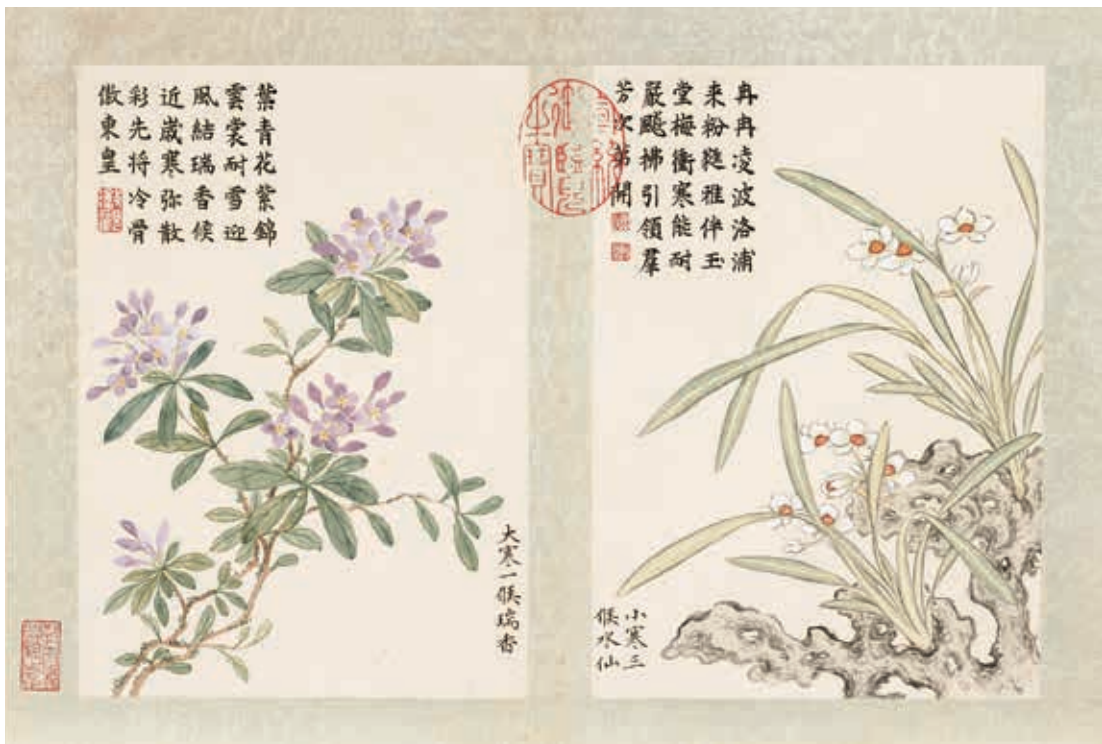 冉冉凌波洛浦
来粉雅伴玉
堂梅衝寒能耐
嚴飈拂引領羣
芳次第開
小寒三
候水仙
葉青花紫錦
雲裳耐雪迎
風結瑞香候
近歲寒弥散
彩先将冷骨
傲東皇
大寒一候瑞香